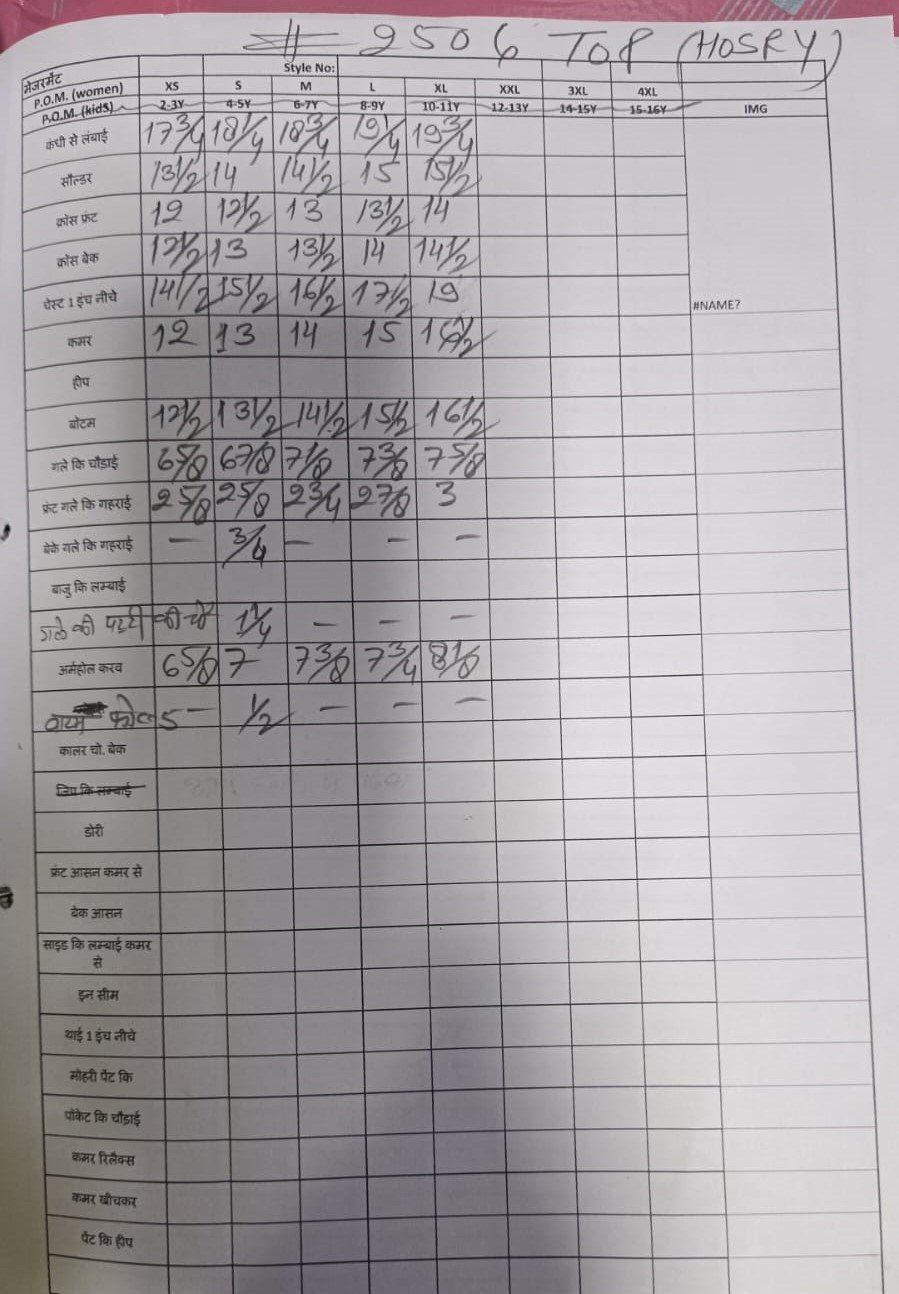 # 2506 TOP (HOSRY)
मेजरमेंट Style No:
P.O.M. (women) XS S M L XL XXL 3XL 4XL
P.O.M. (kids) 2-3Y 4-5Y 6-7Y 8-9Y 10-11Y 12-13Y 14-15Y 15-16Y IMG
कंधी से लंबाई 17 3/4 18 1/4 18 3/4 19 1/4 19 3/4
सौल्डर 13 1/2 14 14 1/2 15 15 1/2
क्रोस फ्रंट 12 12 1/2 13 13 1/2 14
क्रोस बेक 12 1/2 13 13 1/2 14 14 1/2
चेस्ट 1 इंच नीचे 14 1/2 15 1/2 16 1/2 17 1/2 19
#NAME?
कमर 12 13 14 15 16 1/2
हीप
बोटम 12 1/2 13 1/2 14 1/2 15 1/2 16 1/2
गले कि चौडाई 6 5/8 6 7/8 7 1/8 7 3/8 7 5/8
फ्रंट गले कि गहराई 2 5/8 2 5/8 2 3/4 2 7/8 3
बेके गले कि गहराई — 3/4 — — —
बाजु कि लम्बाई
गले की पट्टी की चौ 1 1/4 — — —
अर्महोल करव 6 5/8 7 7 3/8 7 3/4 8 1/8
फोल्ड — 1/2 — — —
कालर चो. बेक
जिप कि लम्बाई
डोरी
फ्रंट आसन कमर से
बेक आसन
साइड कि लम्बाई कमर
से
इन सीम
थाई 1 इंच नीचे
मोहरी पेंट कि
पॉकेट कि चौड़ाई
कमर रिलैक्स
कमर खीचकर
पेंट कि हीप